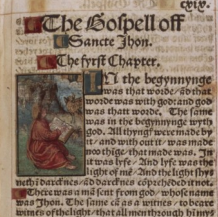 cxix.
The Gospell off
Sancte Jhon.
The fyrst Chapter.
IN the begynnynge
was that worde/ ād that
worde was with god: and god
was thatt worde. The same
was in the begynnynge wyth
god. All thyngs were made by
it/ and with out it/ was made
noo thige/ that made was. In
it was lyfe/ And lyfe was the
light of mē/ And the light shyneth
ī darcknes/ ād darcknes cōprehēded it not.
There was a mā sent from god/ whose name
was Jhon. The same cā as a witnes/ to beare
witnes of the light/ that all men through hī m